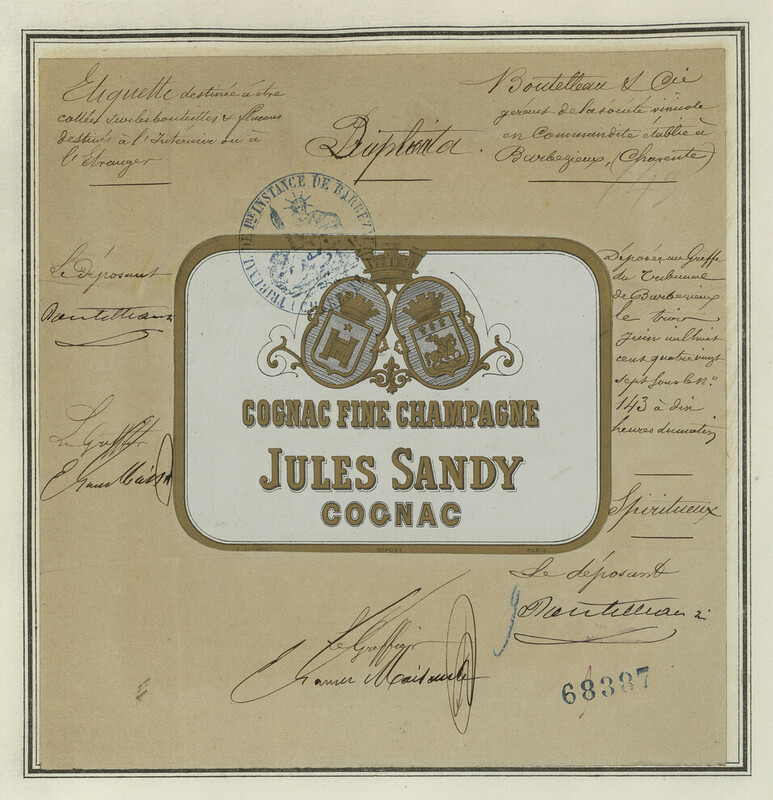 Etiquette destinée à être
collée sur les bouteilles & flacons
destinés à l'Intérieur ou à
l'Etranger
Duplicata.
Boutelleau & Cie
gérants de la société vinicole
en Commandite établie à
Barbezieux, (Charente)
TRIBUNAL DE 1RE INSTANCE DE BARBEZIEUX
Le déposant
Boutelleau
Le Greffier
Déposée au Greffe
du Tribunal
de Barbezieux
le trois
Juin mil huit
cent quatre vingt
sept sous le No.
143 à dix
heures du matin
Spiritueux
COGNAC FINE CHAMPAGNE
JULES SANDY
COGNAC
DÉPOSÉ
PARIS
Le déposant
Boutelleau
Le Greffier
68387